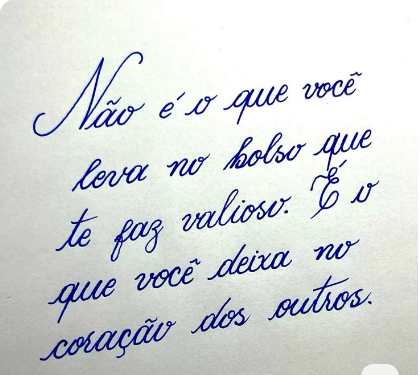 Não é o que você
leva no bolso que
te faz valioso. É o
que você deixa no
coração dos outros.